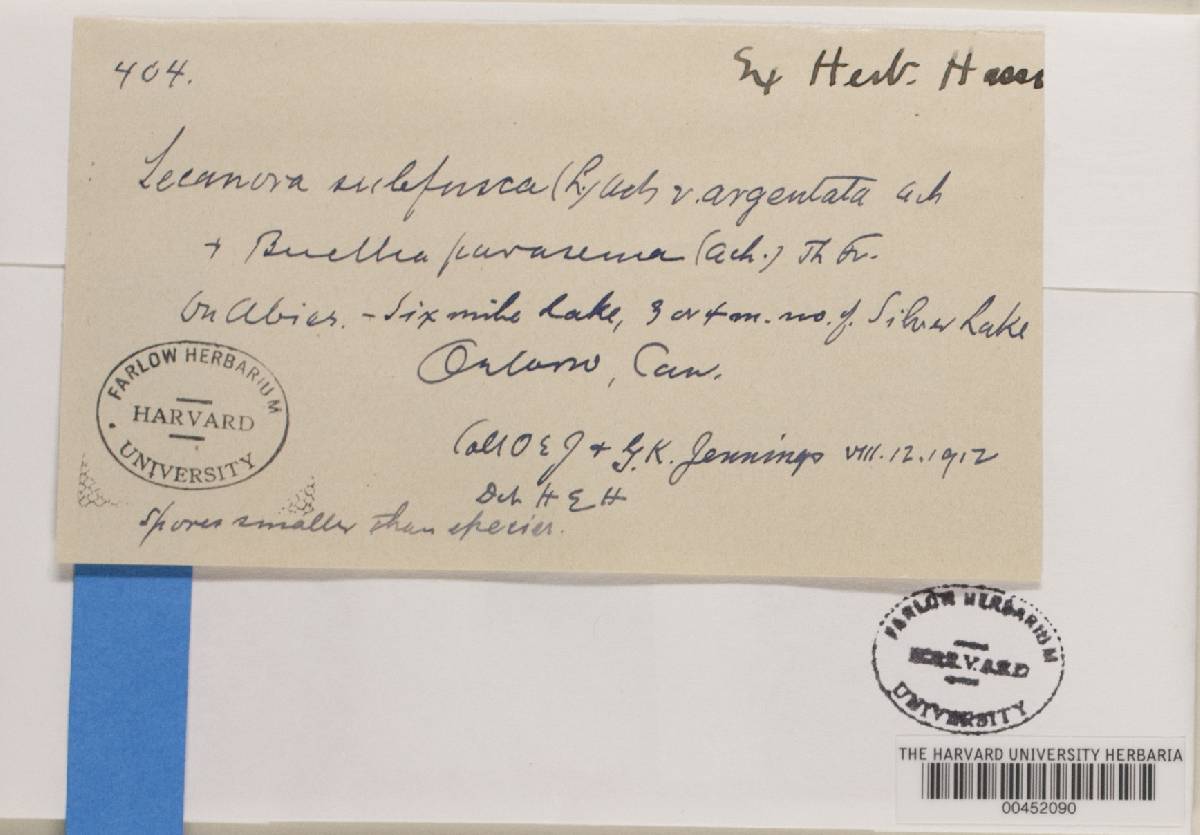 404.
Ex Herb. Hasse
Lecanora subfusca (L.) Ach v. argentata Ach
+ Buellia parasema (Ach.) Th Fr.
On Abies. - Six mile Lake, 3 or 4 m. no. of Silver Lake
Ontario, Can.
Coll O E J + G. K. Jennings VIII. 12. 1912
Det H E H
Spores smaller than species.
FARLOW HERBARIUM
HARVARD
UNIVERSITY
FARLOW HERBARIUM
HARVARD
UNIVERSITY
THE HARVARD UNIVERSITY HERBARIA
00452090